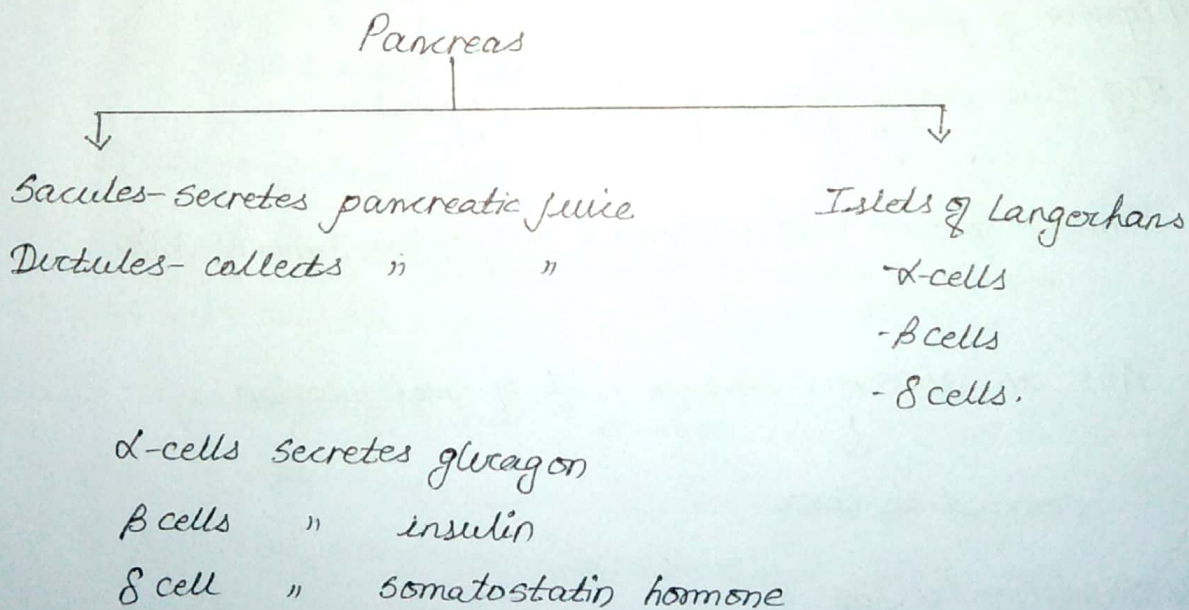 Pancreas
Sacules- secretes pancreatic juice
Ductules- collects " "
Islets of Langerhans
-α-cells
-β cells
-δ cells.
α-cells secretes glucagon
β cells " insulin
δ cell " somatostatin hormone